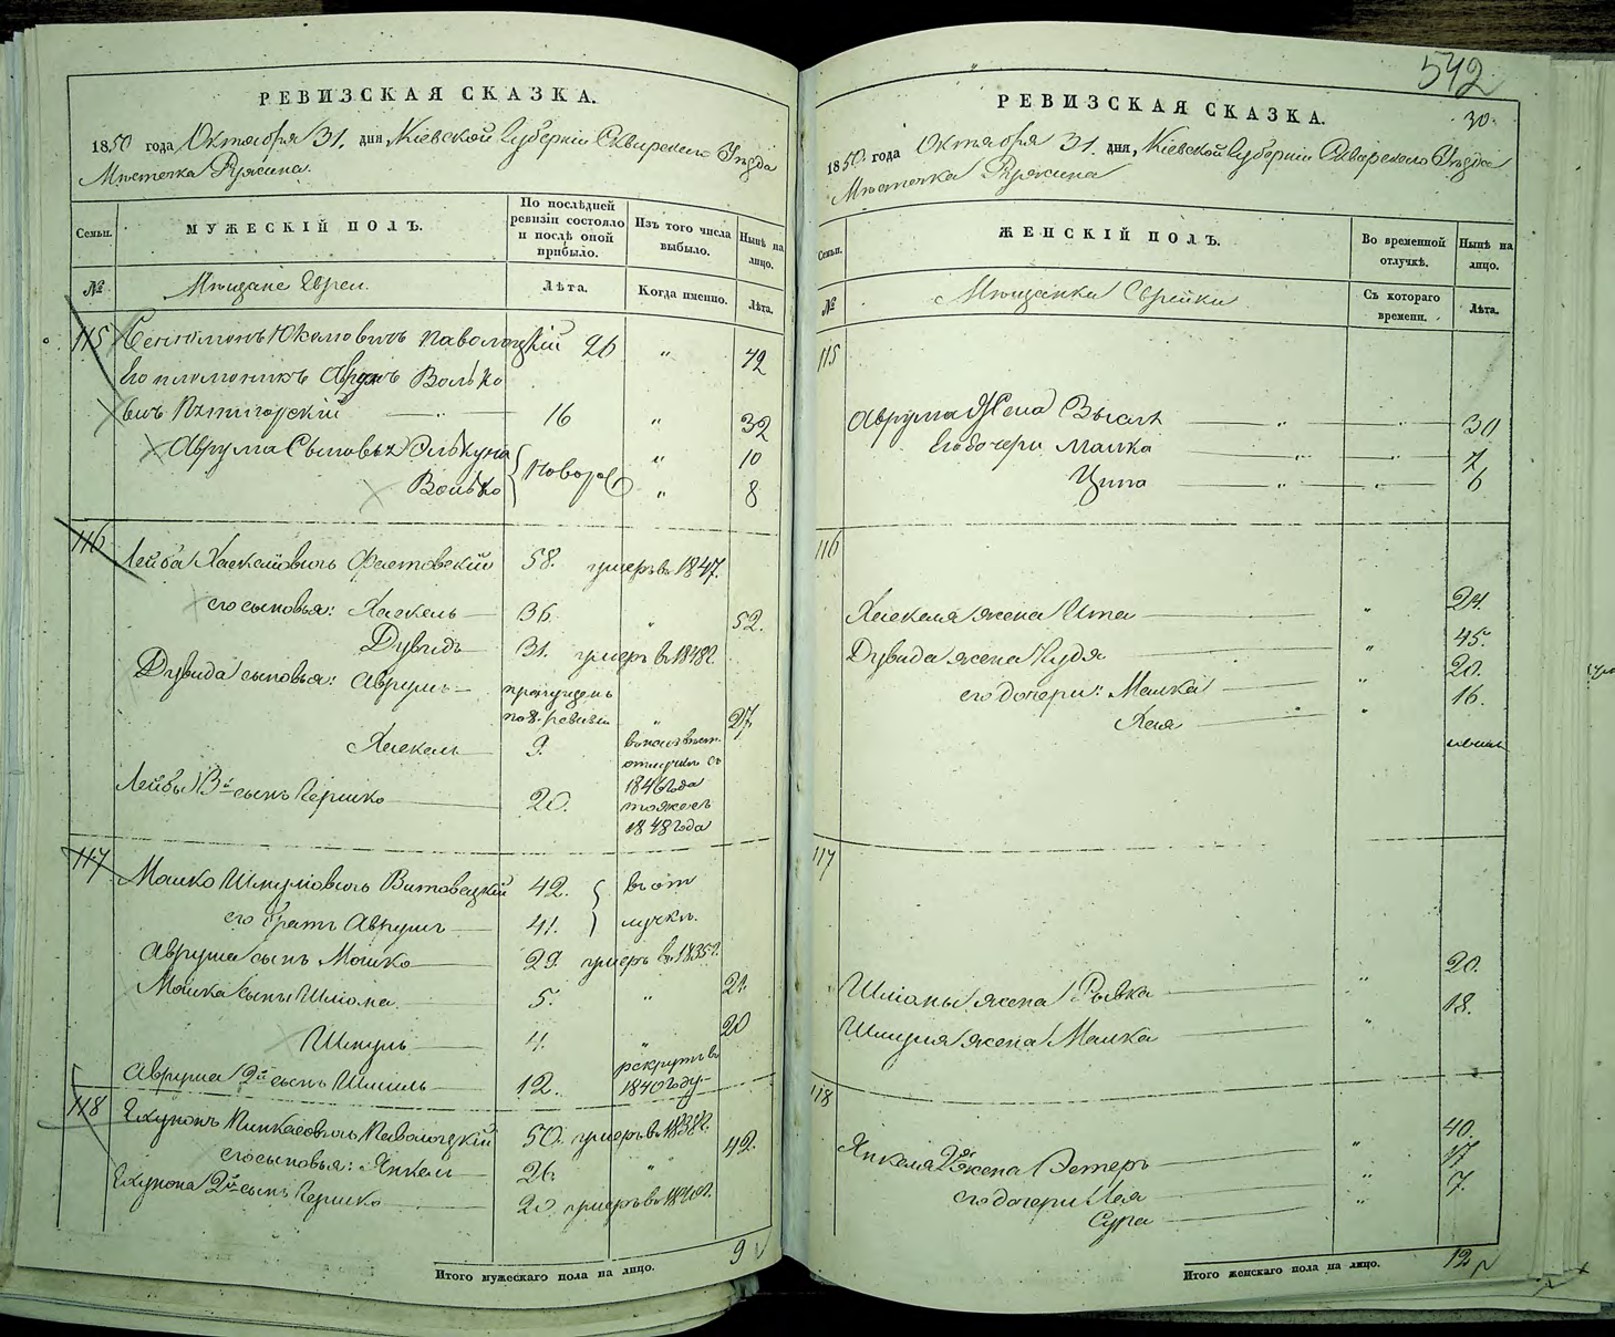 РЕВИЗСКАЯ СКАЗКА.
1850 года Октября 31. дня, Кіевской Губерніи Сквирскаго Уѣзда
Мѣстечка
Семьи.
МУЖЕСКІЙ ПОЛЪ.
По послѣдней ревизіи состояло и послѣ оной прибыло.
Изъ того числа выбыло.
Нынѣ на лицо.
№
Мѣщане Евреи.
Лѣта.
Когда именно.
Лѣта.
115 Юкелѣовичъ Паволоцкій 26 " 42
Его племеникъ Аврумъ Волько
вичъ Пятигорскій — " — 16 " 32
Аврума Сыновья " 10
Волько новорож " 8
116 Лейба Хаскелѣовичъ Фастовскій 58. умеръ въ 1847.
его сыновья: Хаскель 36. " 52.
Дувидъ 31. умеръ въ 1848г.
Дувида сыновья: Аврумъ пропущенъ
по 8. ревизіи " 27
Хаскель 9.
отлучкѣ съ
1846 года
Лейбы 3й сынъ Гершко 20. тоже съ
1848 года
117 Мошко Шмуліовичъ Витовецкій 42. въ от
его братъ Аврумъ 41. лучкѣ.
Аврума сынъ Мошко 29. умеръ въ 1835г.
Мошка сынъ Шліома 5. " 21.
Шмуль 4. " 20
рекрутъ въ
Аврума 2й сынъ 12. 1840 году
118 Пинкасовичъ Паволоцкій 50. умеръ въ 1838г.
его сыновья: Янкель 26. " 42.
2й сынъ Гершко 20 умеръ въ
Итого мужескаго пола на лицо. 9
542
30.
РЕВИЗСКАЯ СКАЗКА.
1850. года Октября 31. дня, Кіевской Губерніи Сквирскаго Уѣзда
Мѣстечка
Семьи.
ЖЕНСКІЙ ПОЛЪ.
Во временной отлучкѣ.
Нынѣ на лицо.
№
Мѣщанки Еврейки
Съ котораго времени.
Лѣта.
115
Аврума Жена — " — " — 30
Его дочери Малка — " — " — 7
Ципа — " — " — 6
116
Хаскеля жена Ита " 24.
Дувида жена " 45.
его дочери: Малка " 20.
Хая " 16.
117
Шліомы жена Рывка " 20.
Шмуля жена Малка " 18.
118
Янкеля 2я жена Эстеръ " 40.
его дочери Лея " 17
Сура " 7.
Итого женскаго пола на лицо. 12